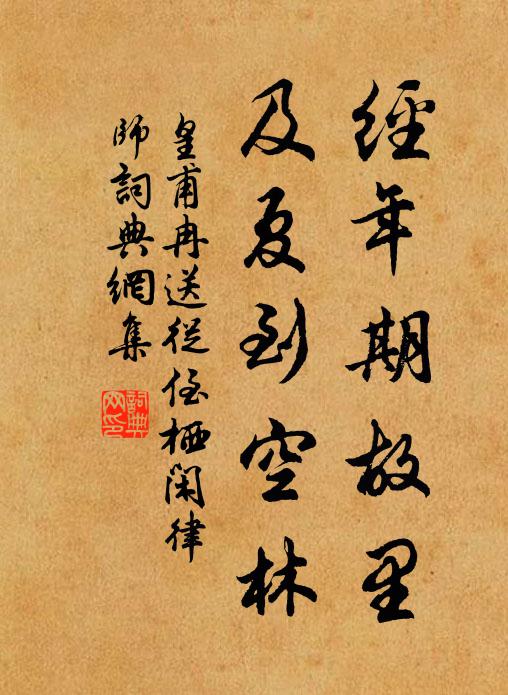 經年期故里
及夏到空林
皇甫冉送從侄栖閑律
師詞典網集
詞典
网印